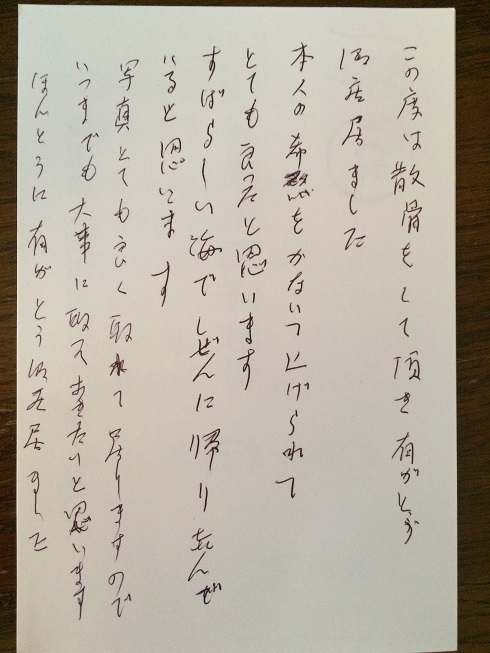 この度は散骨をして頂き有がとう
御座居ました
本人の希望をかないて上げられて
とても良かったと思います
すばらしい海でしぜんに帰り喜んで
いると思います
写真とても良く取れて居りますので
いつまでも大事に取ておきたいと思います
ほんとうに有がとう御座居ました